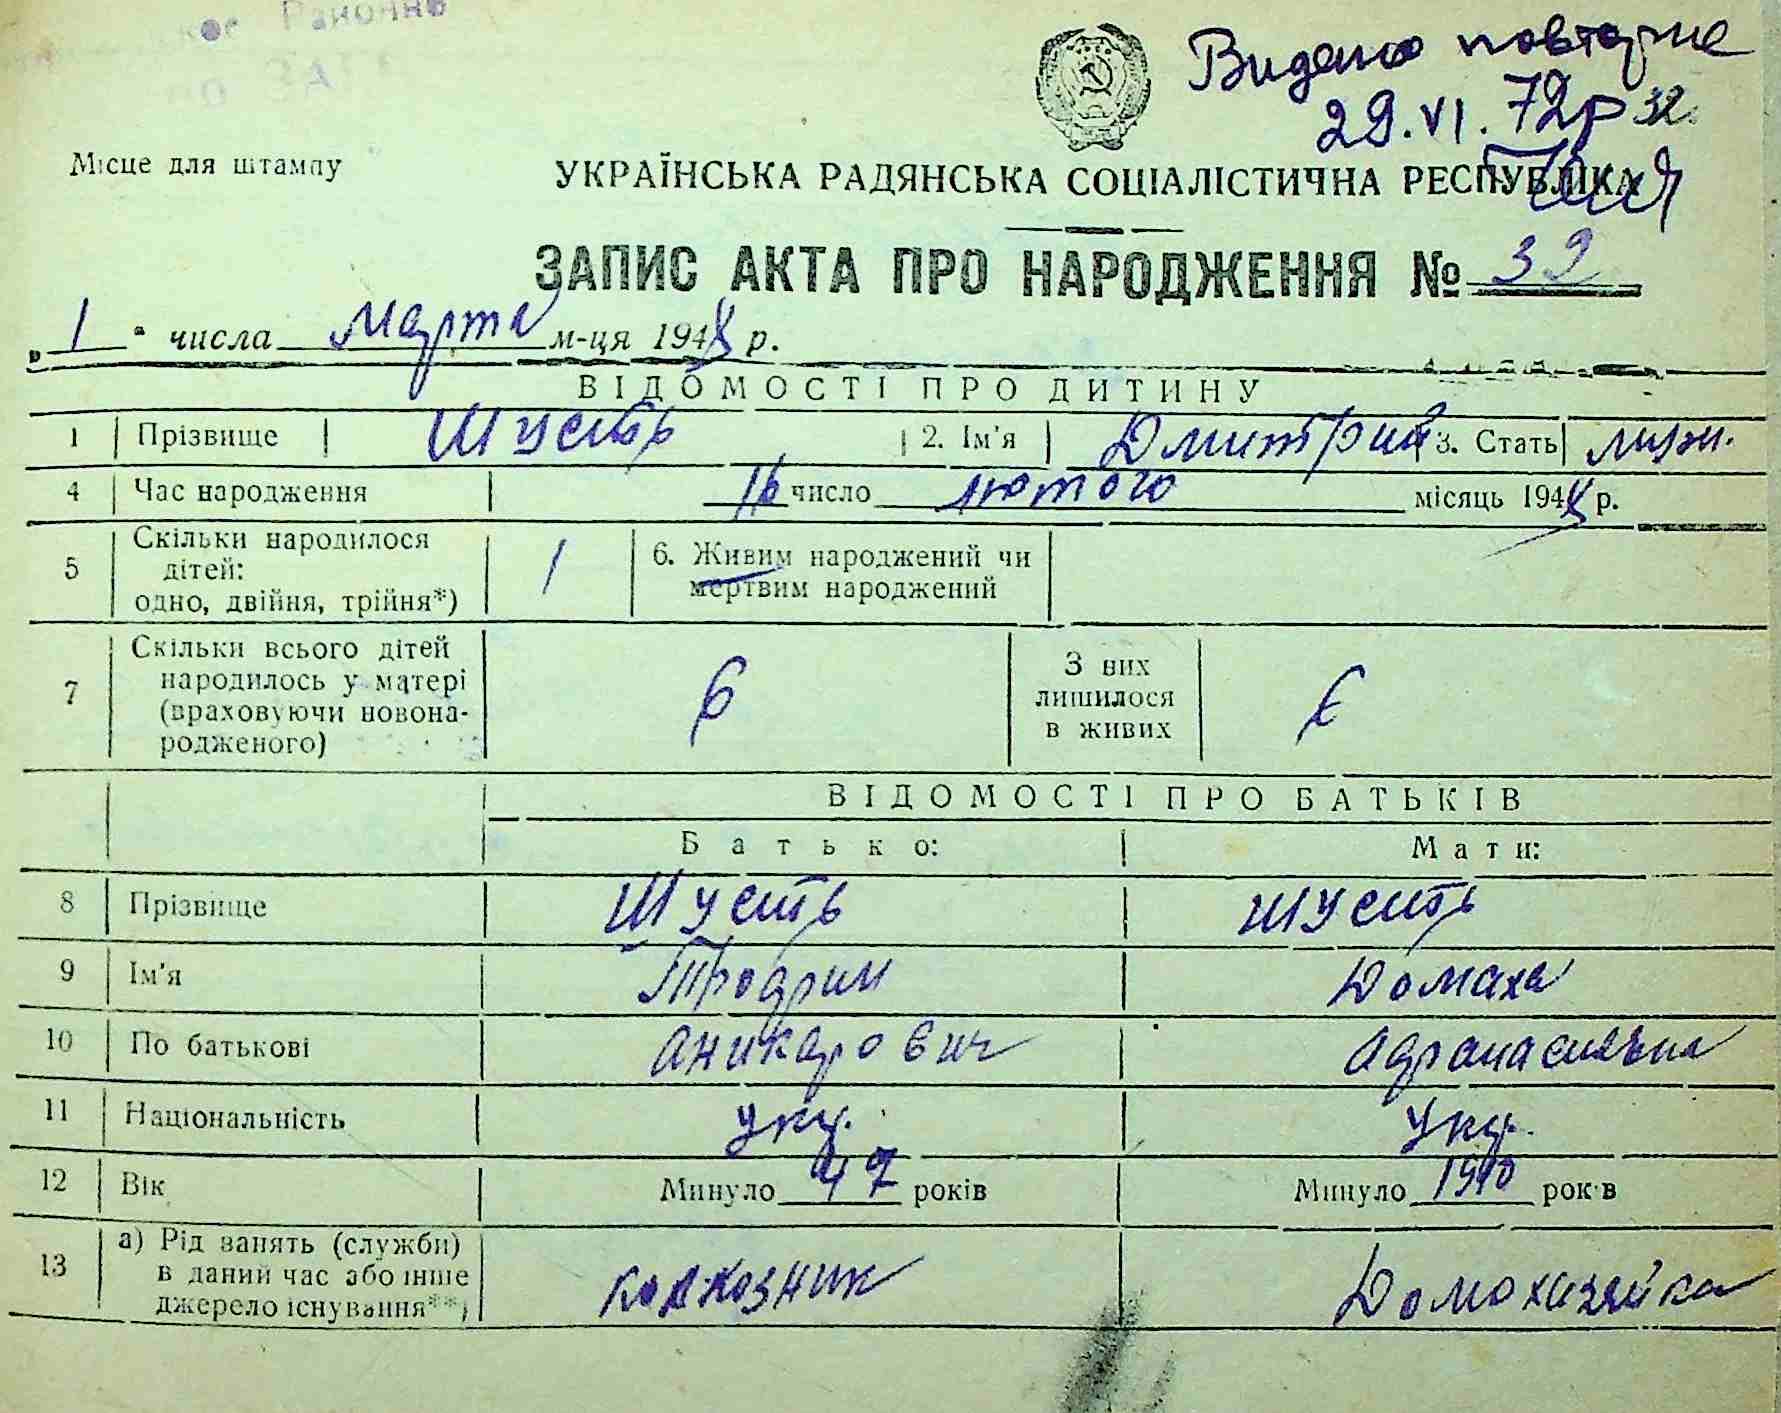 Видано повторне
29.VI.72р
Місце для штампу
УКРАЇНСЬКА РАДЯНСЬКА СОЦІАЛІСТИЧНА РЕСПУБЛІКА
ЗАПИС АКТА ПРО НАРОДЖЕННЯ № 32
„1" числа марта м-ця 194 р.
ВІДОМОСТІ ПРО ДИТИНУ
1 Прізвище Шусть 2. Ім'я Дмитрий 3. Стать муж.
4 Час народження 16 число лютого місяць 194 р.
5 Скільки народилося
дітей:
одно, двійня, трійня*) 1
6. Живим народжений чи
мертвим народжений
7 Скільки всього дітей
народилось у матері
(враховуючи новона-
родженого) 6
З них
лишилося
в живих
ВІДОМОСТІ ПРО БАТЬКІВ
Батько: Мати:
8 Прізвище Шусть Шусть
9 Ім'я Трофим Домаха
10 По батькові Никифорович Афанасиевна
11 Національність укр. укр.
12 Вік Минуло 47 років Минуло 1910 років
13 а) Рід занять (служби)
в даний час або інше
джерело існування**) колхозник Домохазяйка